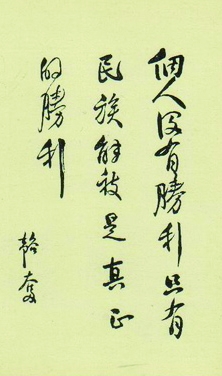 個人没有勝利只有
民族解放是真正
的勝利
韜奮